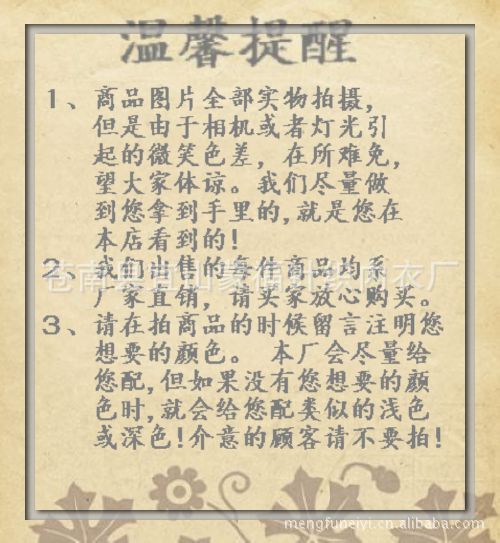 温馨提醒
1、商品图片全部实物拍摄，
但是由于相机或者灯光引
起的微笑色差，在所难免，
望大家体谅。我们尽量做
到您拿到手里的，就是您在
本店看到的！
2、我们出售的每件商品均系
厂家直销，请买家放心购买。
3、请在拍商品的时候留言注明您
想要的颜色。 本厂会尽量给
您配，但如果没有您想要的颜
色时，就会给您配类似的浅色
或深色！介意的顾客请不要拍！
mengfuneiyi.cn.alibaba.com